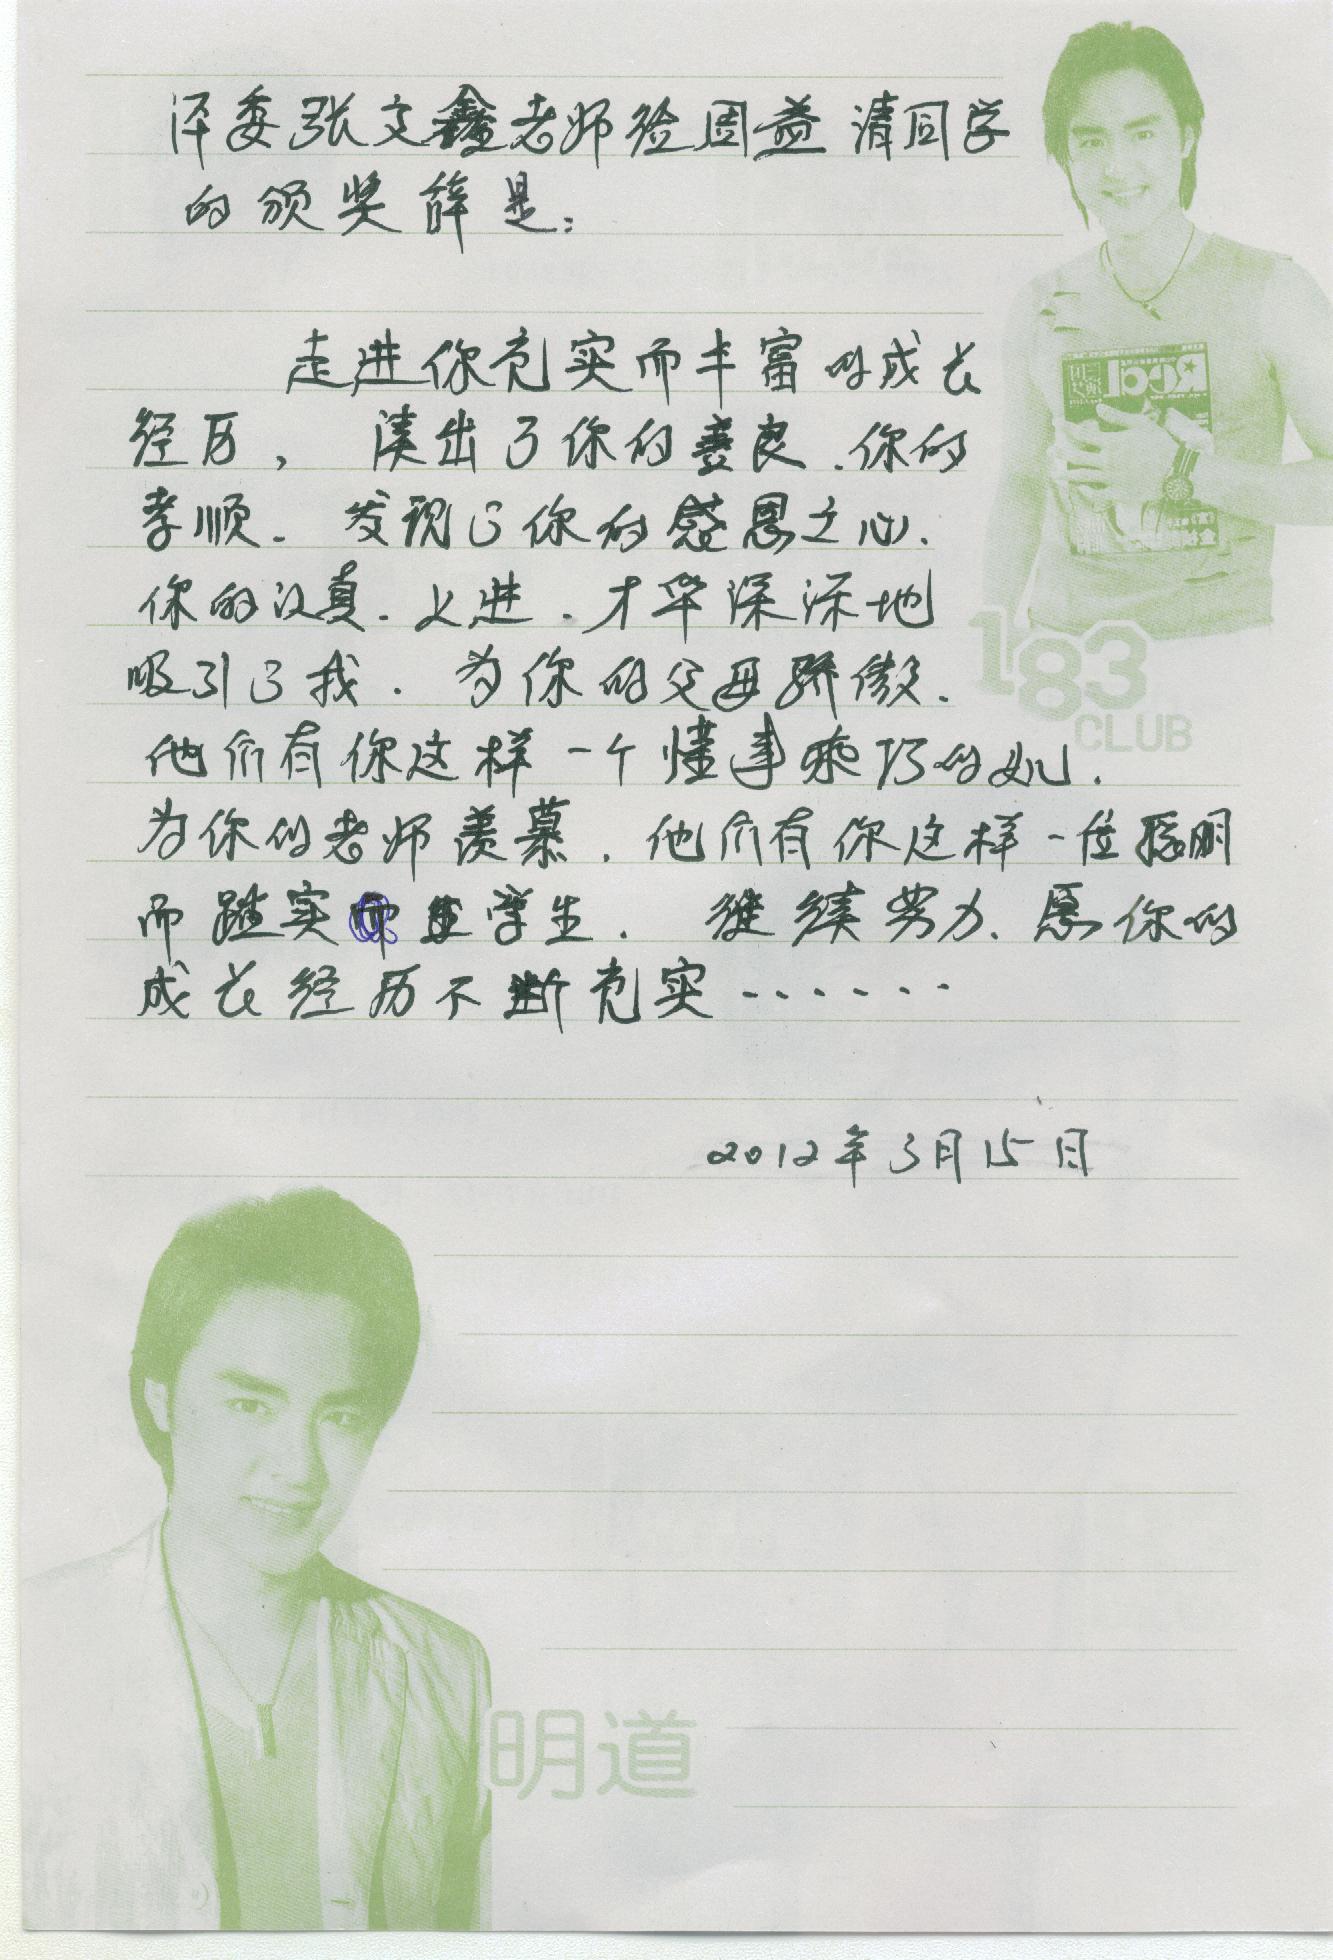 评委张文鑫老师给周益清同学
的颁奖辞是：
走进你充实而丰富的成长
经历，读出了你的善良.你的
孝顺.发现了你的感恩之心.
你的认真.上进.才华深深地
吸引了我.为你的父母骄傲.
他们有你这样一个懂事乖巧的女儿.
为你的老师羡慕.他们有你这样一位聪明
而踏实 学生.继续努力.愿你的
成长经历不断充实······
2012年3月15日
183
CLUB
明道